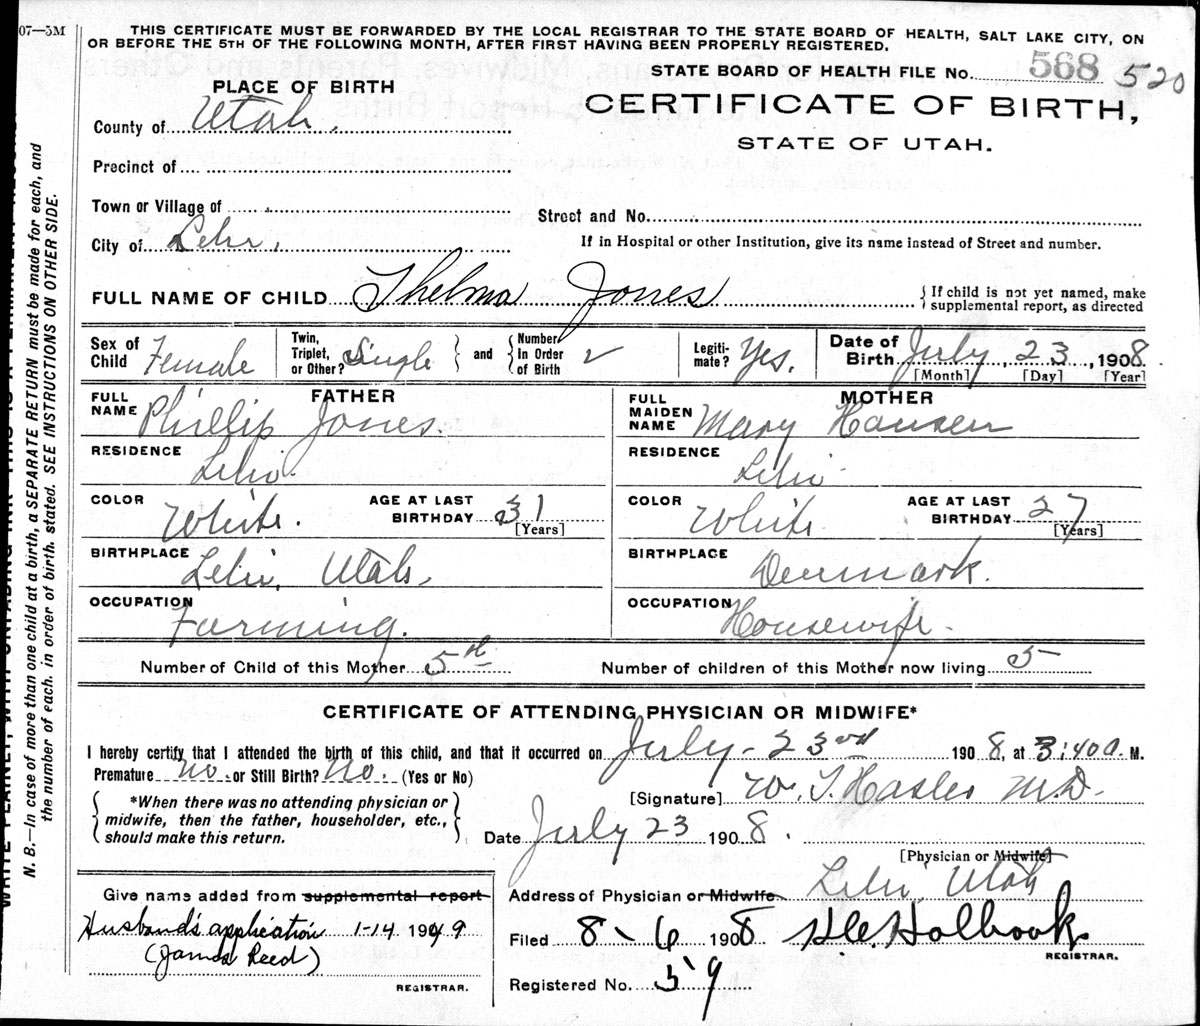 07—5M
THIS CERTIFICATE MUST BE FORWARDED BY THE LOCAL REGISTRAR TO THE STATE BOARD OF HEALTH, SALT LAKE CITY, ON
OR BEFORE THE 5TH OF THE FOLLOWING MONTH, AFTER FIRST HAVING BEEN PROPERLY REGISTERED.
STATE BOARD OF HEALTH FILE No. 568 520
PLACE OF BIRTH
CERTIFICATE OF BIRTH,
STATE OF UTAH.
County of Utah.
Precinct of
Town or Village of
Street and No.
City of Lehi.
If in Hospital or other Institution, give its name instead of Street and number.
FULL NAME OF CHILD Thelma Jones
{If child is not yet named, make
supplemental report, as directed
Sex of Child Female
Twin, Triplet, or Other? Single } and { Number In Order of Birth 2
Legitimate? Yes.
Date of Birth July, 23, 1908.
[Month] [Day] [Year]
FATHER
FULL NAME Phillip Jones.
RESIDENCE Lehi.
COLOR White. AGE AT LAST BIRTHDAY 31 [Years]
BIRTHPLACE Lehi, Utah.
OCCUPATION Farming.
MOTHER
FULL MAIDEN NAME Mary Hansen
RESIDENCE Lehi
COLOR White AGE AT LAST BIRTHDAY 27 [Years]
BIRTHPLACE Denmark.
OCCUPATION Housewife.
Number of Child of this Mother 5th Number of children of this Mother now living 5
CERTIFICATE OF ATTENDING PHYSICIAN OR MIDWIFE*
I hereby certify that I attended the birth of this child, and that it occurred on July - 23rd 1908, at 3:40 a. M.
Premature No. or Still Birth? No. (Yes or No)
*When there was no attending physician or
midwife, then the father, householder, etc.,
should make this return.
[Signature] W. T. Hasler M.D.
Date July 23 1908.
[Physician or Midwife]
Address of Physician or Midwife. Lehi, Utah
Give name added from supplemental report
Husband's application 1-14 1949
(James Reed)
REGISTRAR.
Filed 8-6 1908 Holbrook
REGISTRAR.
Registered No. 59
N. B.—In case of more than one child at a birth, a SEPARATE RETURN must be made for each, and
the number of each, in order of birth, stated. SEE INSTRUCTIONS ON OTHER SIDE.